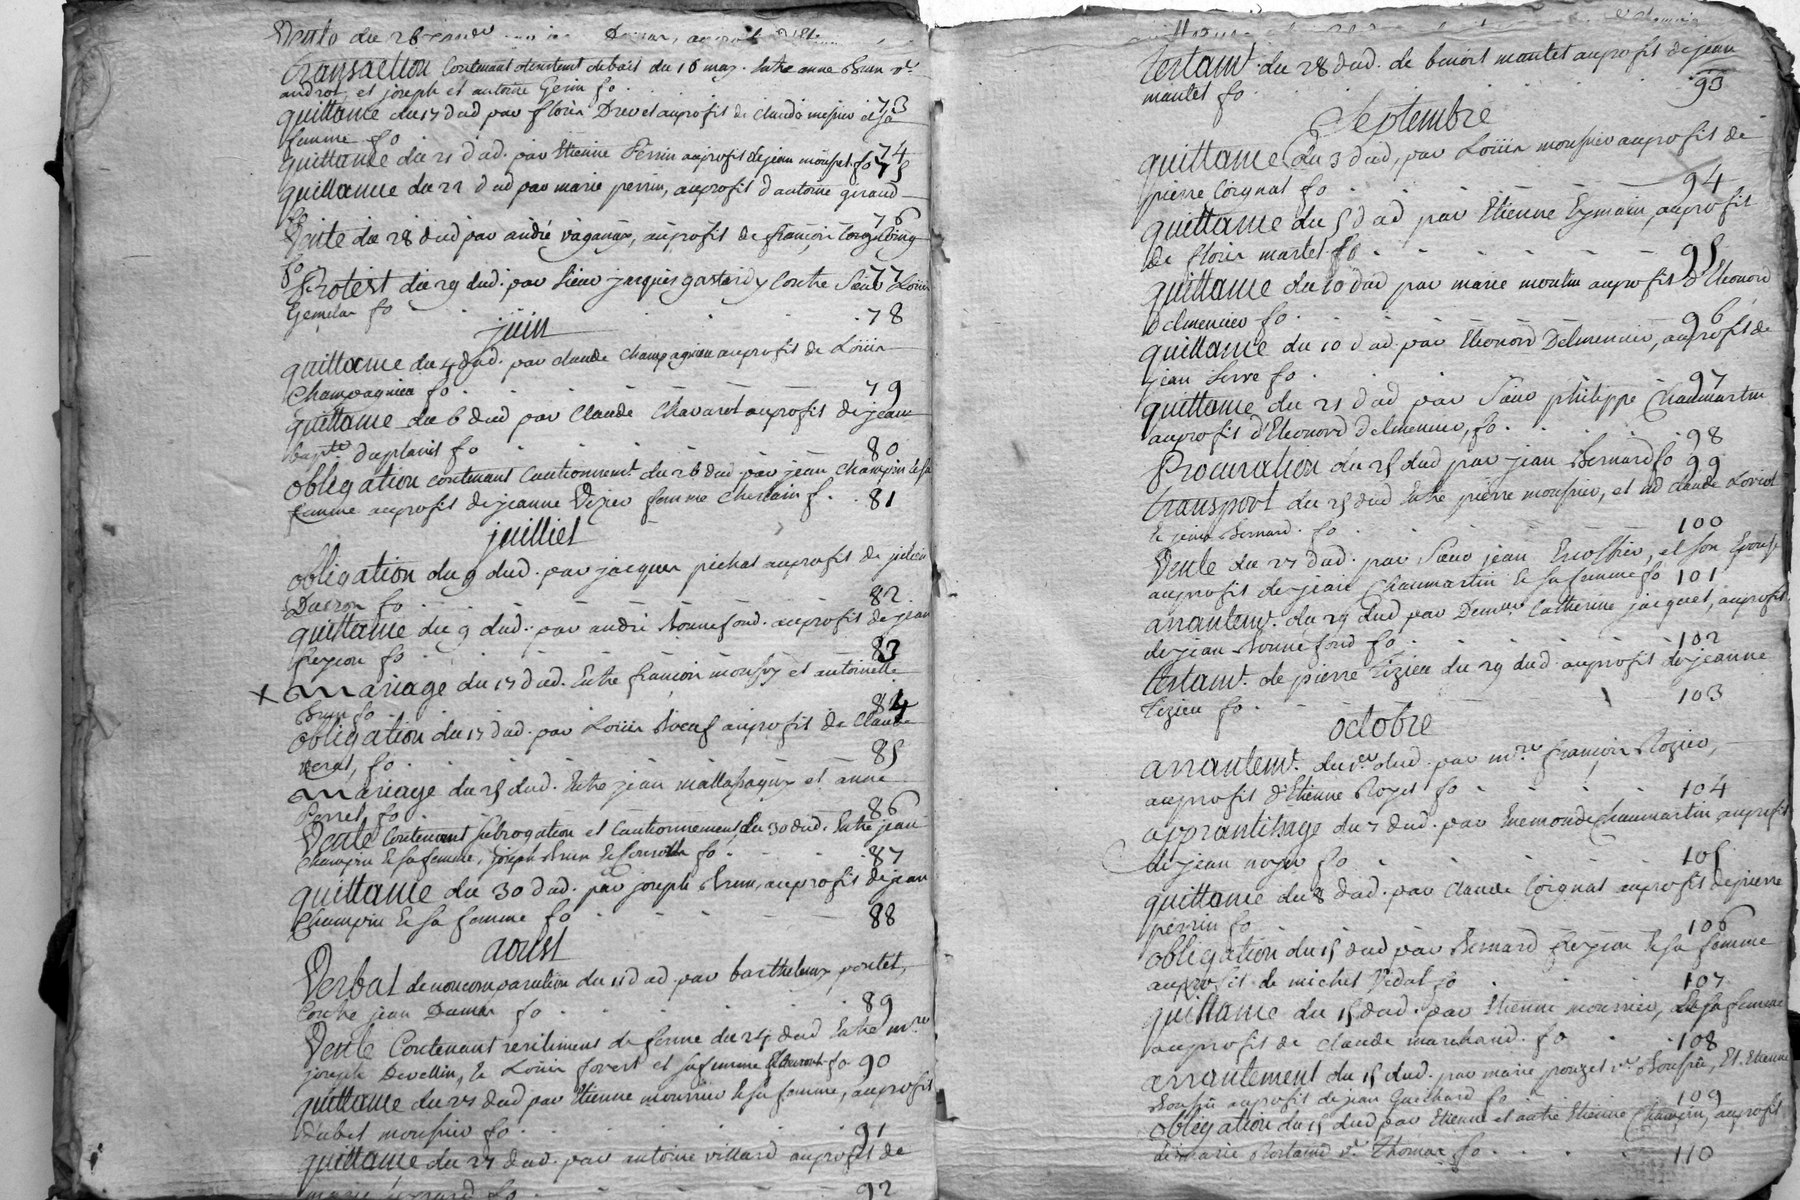 Vente du 26
transaction Contenant du bail du 16 may. Entre anne Brun v.e
androt, et joseph et antoine Genin fo
quittance du 17 dud par Drevet auproffit de Claude mesnier et Sa 73
femme fo
quittance du 21 dud. par Etienne Perrin auproffit de jean mousset fo 74
quittance du 22 dud par marie perrin, auproffit d'antoine giraud 75
fo
Vente du 28 dud par andré vaganay, auproffit de françois 76
fo
Protest du 29 dud. par Sieur jacques gastardy Contre Louis 77
Gemelas fo 78
juin
quittance du 4 dud. par claude Champagnieu auproffit de Louis
Champagnieu fo 79
quittance du 6 dud par Claude Chavarot auproffit de jean
bap.te duplanit fo 80
obligation contenant Cautionnem.t du 26 dud par jean Champin et sa
femme auproffit de jeanne Vizieu femme f. 81
juilliet
obligation du 9 dud. par jacques pichat auproffit de
fo 82
quittance du 9 dud. par andré Bonnefond. auproffit de jean
Peyron fo 83
x mariage du 17 dud. Entre françois et antoinette
Brun fo 84
obligation du 17 dud. par Louis Boeuf auproffit de Claude
fo 85
mariage du 25 dud. Entre jean et anne
Perret fo 86
Vente Contenant subrogation et Cautionnement du 30 dud. Entre jean
Champin et sa femme, joseph Brun et fo 87
quittance du 30 dud. par joseph Brun, auproffit de jean
Champin et sa femme fo 88
aoust
Verbal de noncomparution du 11 dud par barthelemy pontet,
Contre jean Dumas fo 89
Vente Contenant resiliment de ferme du 24 dud Entre m.re
joseph Devellin, et Louis forest et sa femme fo 90
quittance du 27 dud par Etienne mournier et sa femme, auproffit
fo 91
quittance du 27 dud. par antoine villard auproffit de
marie fo 92
testam.t du 28 dud. de benoist mantet auproffit de jean
mantet fo 93
Septembre
quittance du 3 dud, par Louis monsieu auproffit de
pierre Coignat fo 94
quittance du 5 dud par Etienne Eymain, auproffit
de martel fo 95
quittance du 10 dud par marie moulin auproffit d'Eleonord
Delmenieu fo 96
quittance du 10 dud. par Eleonord Delmenieu, auproffit de
jean Serre fo 97
quittance du 21 dud par Sieur philippe Chaumartin
auproffit d'Eleonord Delmenieu, fo 98
Procuration du 25 dud par jean Bernard fo 99
transport du 25 dud Entre pierre monsieu, et claude
et jean Bernard. fo 100
Vente du 27 dud. par Sieur jean Escoffier, et son Epouse
auproffit de jean Chaumartin et sa femme fo 101
arrantem.t du 29 dud par Catherine jacquet, auproffit
de jean Bonnefond fo 102
testam.t de pierre Vizieu du 29 dud. auproffit de jeanne
Vizieu fo 103
octobre
arrantem.t du 1.er dud par m.re françois Rozier,
auproffit d'Etienne Royet fo 104
apprantissage du 7 dud. par Enemonde Chaumartin auproffit
de jean noyer fo 105
quittance du 8 dud. par claude Coignat auproffit de pierre
perrin fo 106
obligation du 15 dud par Bernard Peyron et sa femme
auproffit de michel Vidal fo 107
quittance du 15 dud. par Etienne mournier, et sa femme
auproffit de claude marchand. fo 108
arrantement du 15 dud. par marie pouzet v.e Et Etienne
auproffit de jean Guichard fo 109
obligation du 15 dud par Etienne et autre Etienne Champin, auproffit
de marie v.e Thomas fo 110